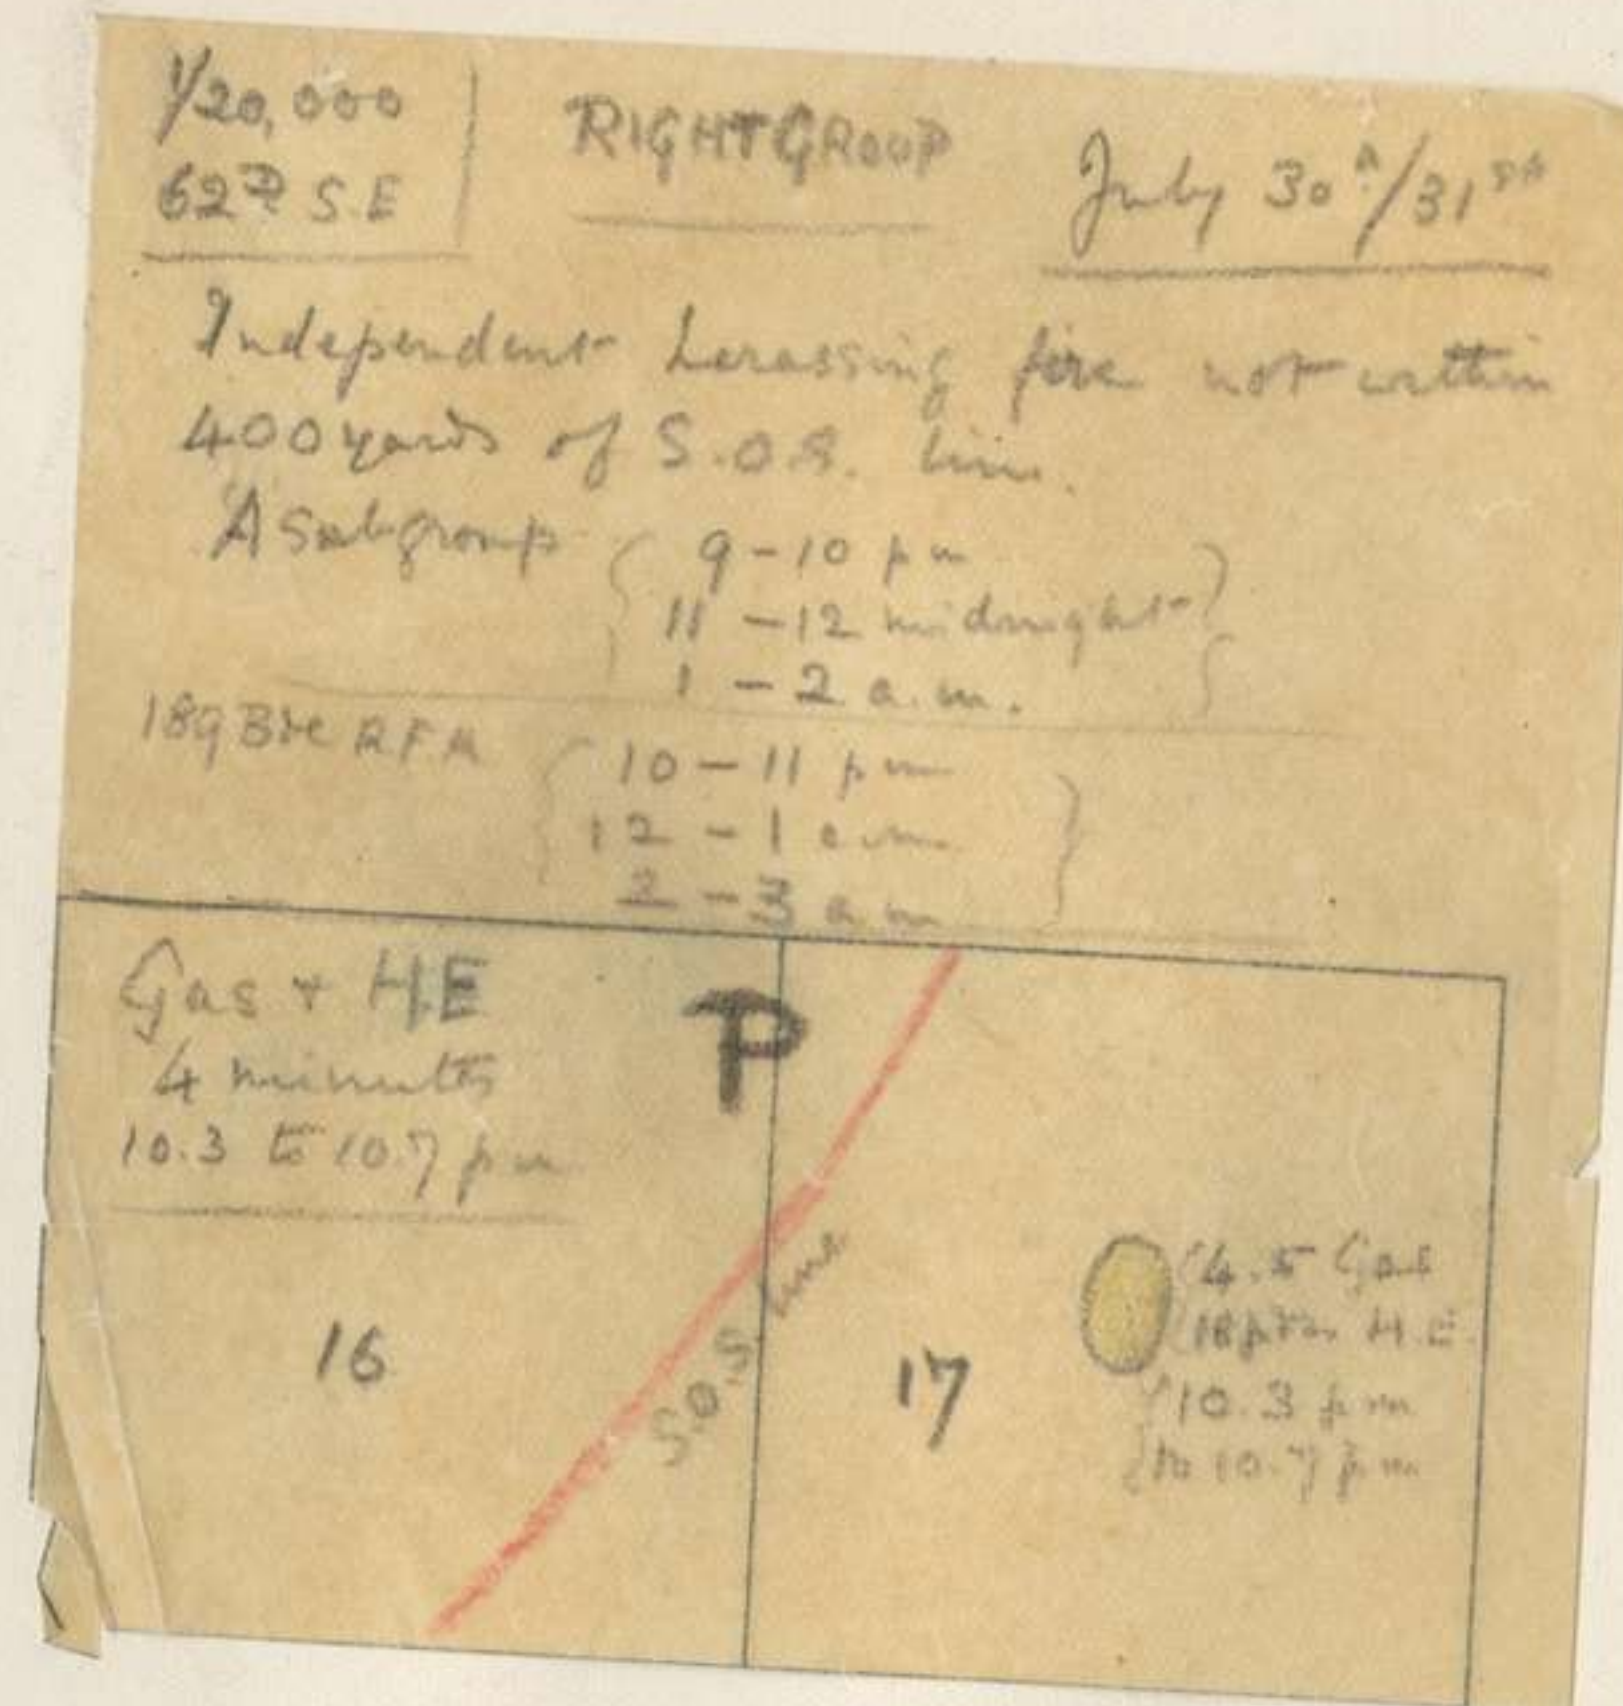 1/20,000
62D S.E
RIGHT GROUP
July 30th/31st
Independent harassing fire not within
400 yards of S.O.S. line.
A Subgroup
9-10 pm
11-12 midnight
1-2 a.m.
189 Bde R.F.A
10-11 pm
12-1 a.m
2-3 a m
Gas + H.E
4 minutes
10.3 to 10.7 pm
P
16
S.O.S line
17
4.5 Gas
18 pdrs H.E.
10.3 p m
to 10.7 p m